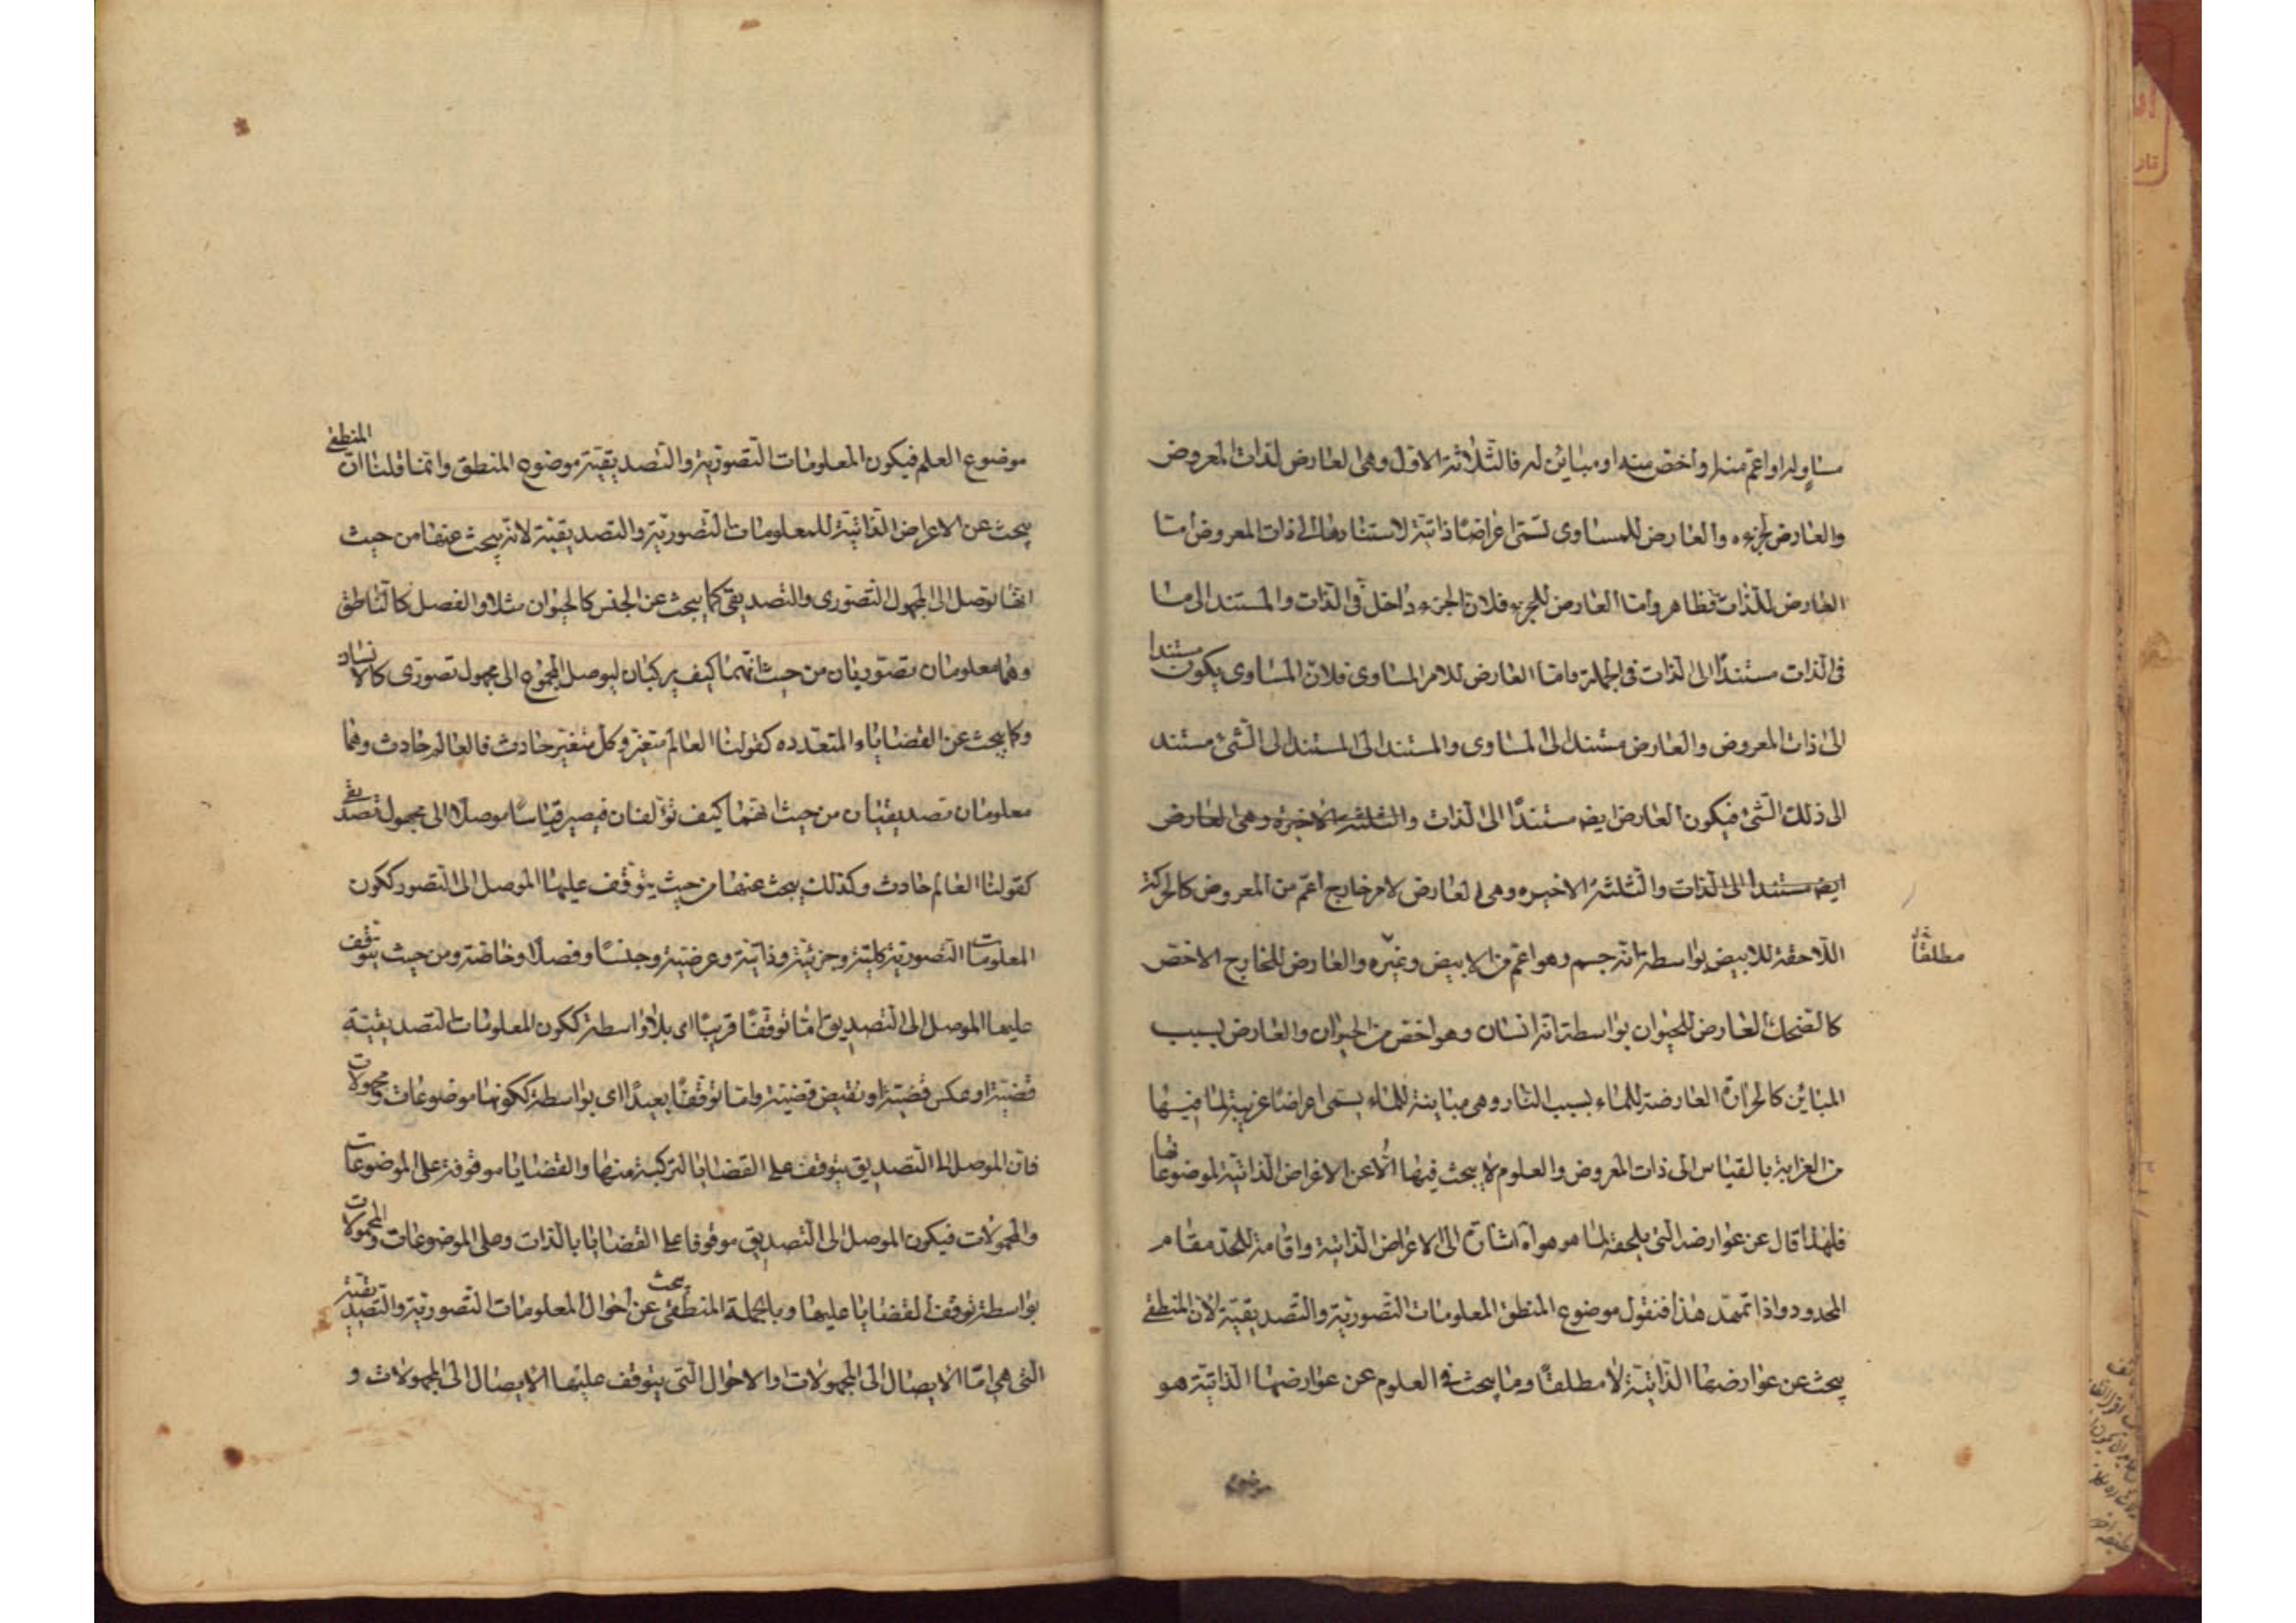 مساوٍ له او اعمّ منه او اخصّ منه او مباين له فالثلاثة الاول وهى العارض لذات المعروض
والعارض لجزءه والعارض للمساوى تسمّى اعراضًا ذاتيّة لاستنادها الى ذات المعروض امّا
العارض للذات فظاهر وامّا العارض للجزء فلانّ الجزء داخل فى الذات والمستند الى ما
فى الذات مستندًا الى الذات فى الجملة وامّا العارض للامر المساوى فلانّ المساوى يكون مستندا
الى ذات المعروض والعارض مستند الى المساوى والمستند الى المستند الى الشئ مستند
الى ذلك الشئ فيكون العارض ايضه مستندًا الى الذات والثلثة الاخيره وهى العارض
ايضه مستندا الى الذات والثلثة الاخيره وهى العارض لامر خارج اعمّ من المعروض كالحركة
اللاحقة للابيض بواسطة انّه جسم وهو اعمّ من الابيض وغيره والعارض للخارج الاخصّ
مطلقًا
كالضحك العارض للحيوان بواسطة انّه انسان وهو اخصّ من الحيوان والعارض بسبب
المباين كالحرارة العارضة للماء بسبب النار وهى مباينة للماء يسمّى اعراضًا غريبة لما فيها
من الغرابة بالقياس الى ذات المعروض والعلوم لا يبحث فيها الّا عن الاعراض الذاتيّة لموضوعاتها
فلهذا قال عن عوارضه التى يلحقه لما هو هو آه اشارة الى الاعراض الذاتية واقامة للحدّ مقام
المحدود واذا تمهّد هذا فنقول موضوع المنطق المعلومات التّصوريّة والتّصديقيّة لانّ المنطقى
يبحث عن عوارضها الذاتيّة لا مطلقًا وما يبحث فى العلوم عن عوارضها الذاتيّة هو
موضوع
موضوع العلم فيكون المعلومات التّصوريّة والتّصديقيّة موضوع المنطق وانّما قلنا انّ المنطقى
يبحث عن الاعراض الذاتيّة للمعلومات التّصوريّة والتصديقيّة لانّه يبحث عنها من حيث
انّها توصل الى المجهول التّصورى والتّصديقى كما يبحث عن الجنس كالحيوان مثلا والفصل كالنّاطق
وهما معلومان تصوّريان من حيث انّهما كيف يركبان ليوصل المجموع الى مجهول تصورى كالانسان
وكما يبحث عن القضاياء المتعدده كقولنا العالم متغيّر وكلّ متغيّر حادث فالعالم حادث وهما
معلومان تصديقيان من حيث انهما كيف تؤلفان فيصير قياسًا موصلًا الى مجهول تصديقى
كقولنا العالم حادث وكذلك يبحث عنها من حيث يتوقف عليها الموصل الى التّصور ككون
المعلومات التّصوريّة كليّة وجزئيّة وذاتيّة وعرضيّة وجنسًا وفصلًا وخاصّة ومن حيث يتوقف
عليها الموصل الى التّصديق امّا توقّفًا قريبًا اى بلا واسطة ككون المعلومات التصديقيّة
قضيّة او عكس قضيّة او نقيض قضيّة وامّا توقّفًا بعيدًا اى بواسطة ككونها موضوعات ومحمولات
فانّ الموصل الى التّصديق يتوقف على القضايا التركيبة منها والقضايا موقوفة على الموضوعات
والمحمولات فيكون الموصل الى التّصديق موقوفا على القضايا بالذات وعلى الموضوعات والمحمولات
بواسطة توقف القضايا عليها وبالجملة المنطقى يبحث عن احوال المعلومات التّصوريّة والتّصديقيّة
التى هى امّا الايصال الى المجهولات او الاحوال التى يتوقف عليها الايصال الى المجهولات و